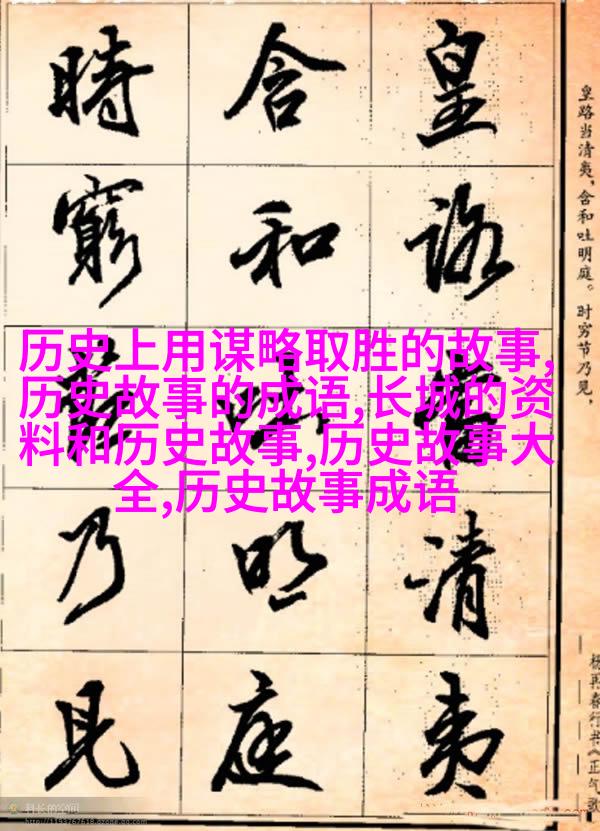 皇路清夷
含和明庭
時窮乃見
皇路当清夷,含和吐明庭。时穷节乃见,
杨再春行书《正气歌
历史上用谋略取胜的故事,
历史故事的成语,长城的资
料和历史故事,历史故事大
全,历史故事成语
科长的空间
http://1193767618.qzone.qq.com